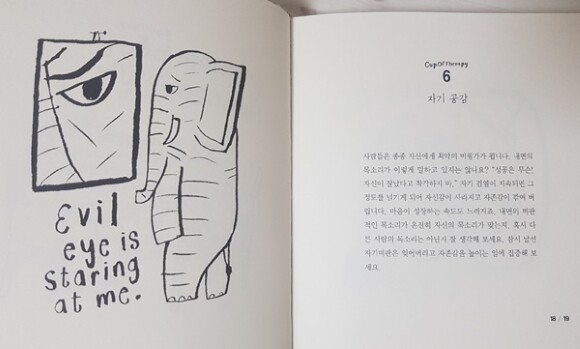 Evil
eye is
staring
at me.
CupOfTherapy
6
자기 공감
사람들은 종종 자신에게 최악의 비평가가 됩니다. 내면의
목소리가 이렇게 말하고 있지는 않나요? "성공은 무슨!
자신이 잘났다고 착각하지 마." 자기 검열이 지속되면 그
정도를 넘기게 되어 자신감이 사라지고 자존감이 깎여 버
립니다. 마음이 성장하는 속도도 느려지죠. 내면의 비판
적인 목소리가 온전히 자신의 목소리가 맞는지, 혹시 다
른 사람의 목소리는 아닌지 잘 생각해 보세요. 잠시 날선
자기비판은 잊어버리고 자존감을 높이는 일에 집중해 보
세요.
18 / 19